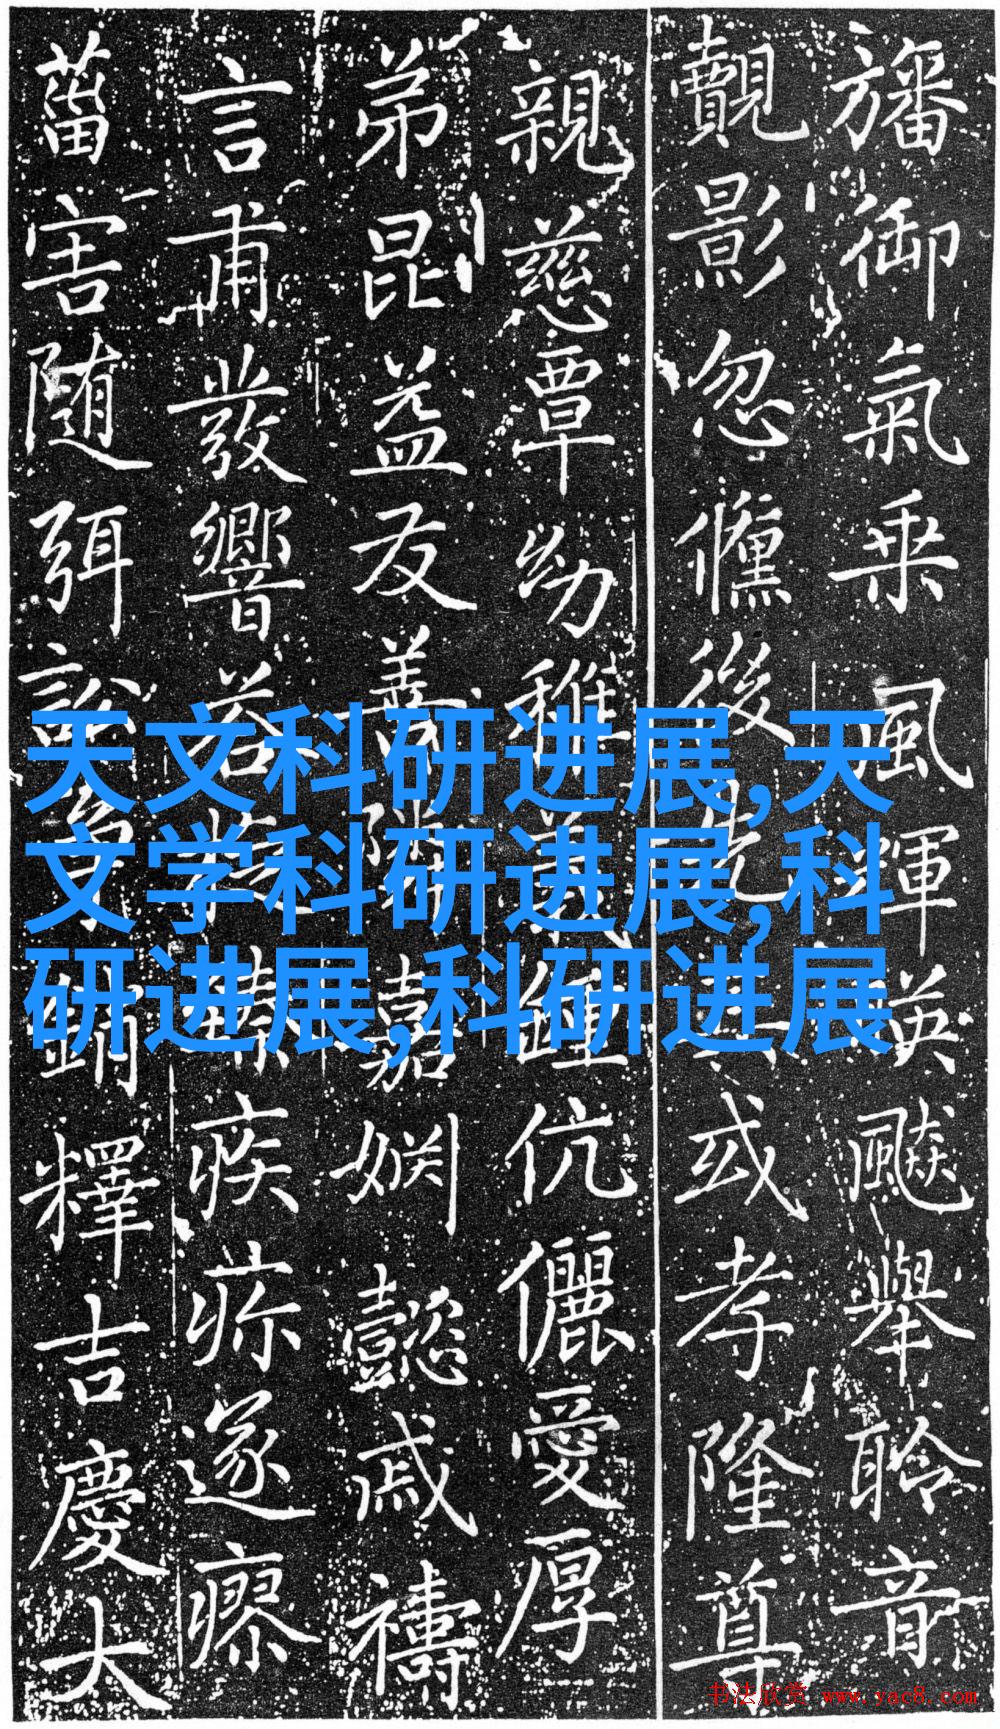 旛御氣乘風暉英飈舉聆音
覿影忽儵後或孝隆尊
親慈覃幼稚伉儷愛厚
弟昆益友善嘉嫉懿戚禱
言甫發響疾疢遂瘳
菑害随弭釋吉慶大
天文科研进展,天
文学科研进展,科
研进展,科研进展
书法欣赏 www.yac8.com